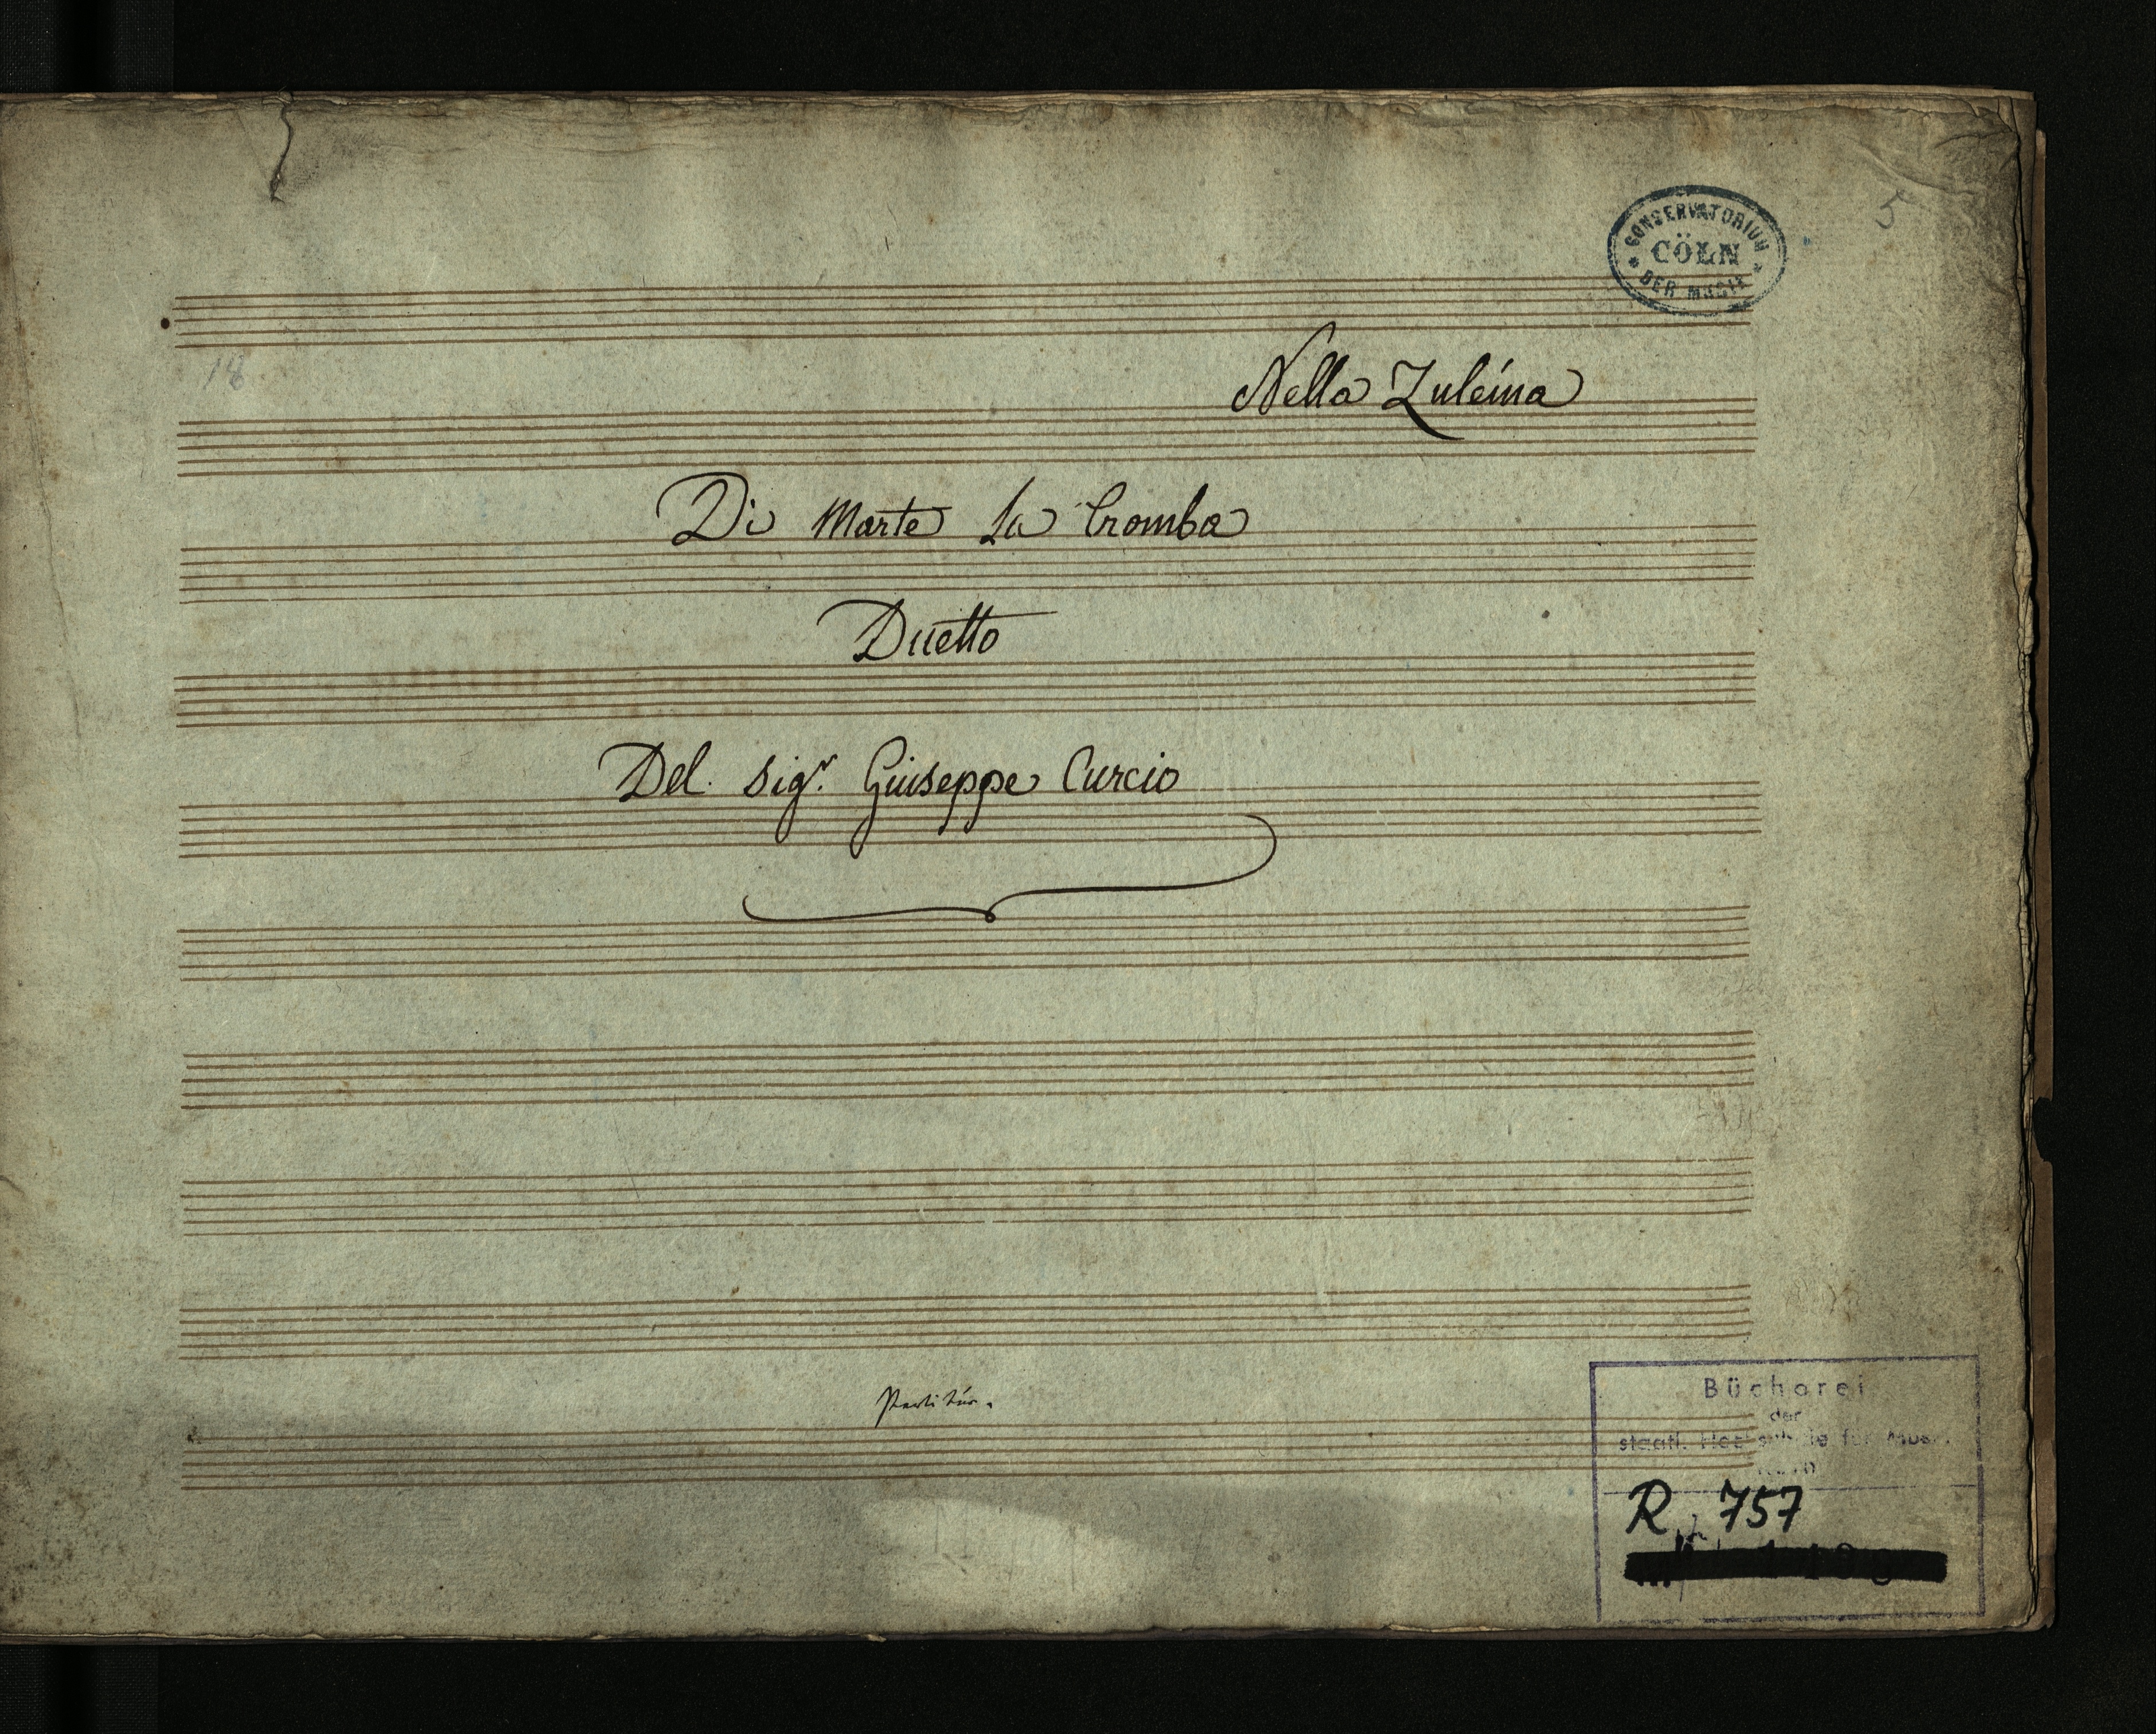 CONSERVATORIUM
CÖLN
DER MUSIK
5
18
Nella Zuleima
Di Marte La Tromba
Duetto
Del Sigr. Giuseppe Curcio
Partitur.
Bücherei
der
staatl. Hochschule für Musik
Köln
R 757